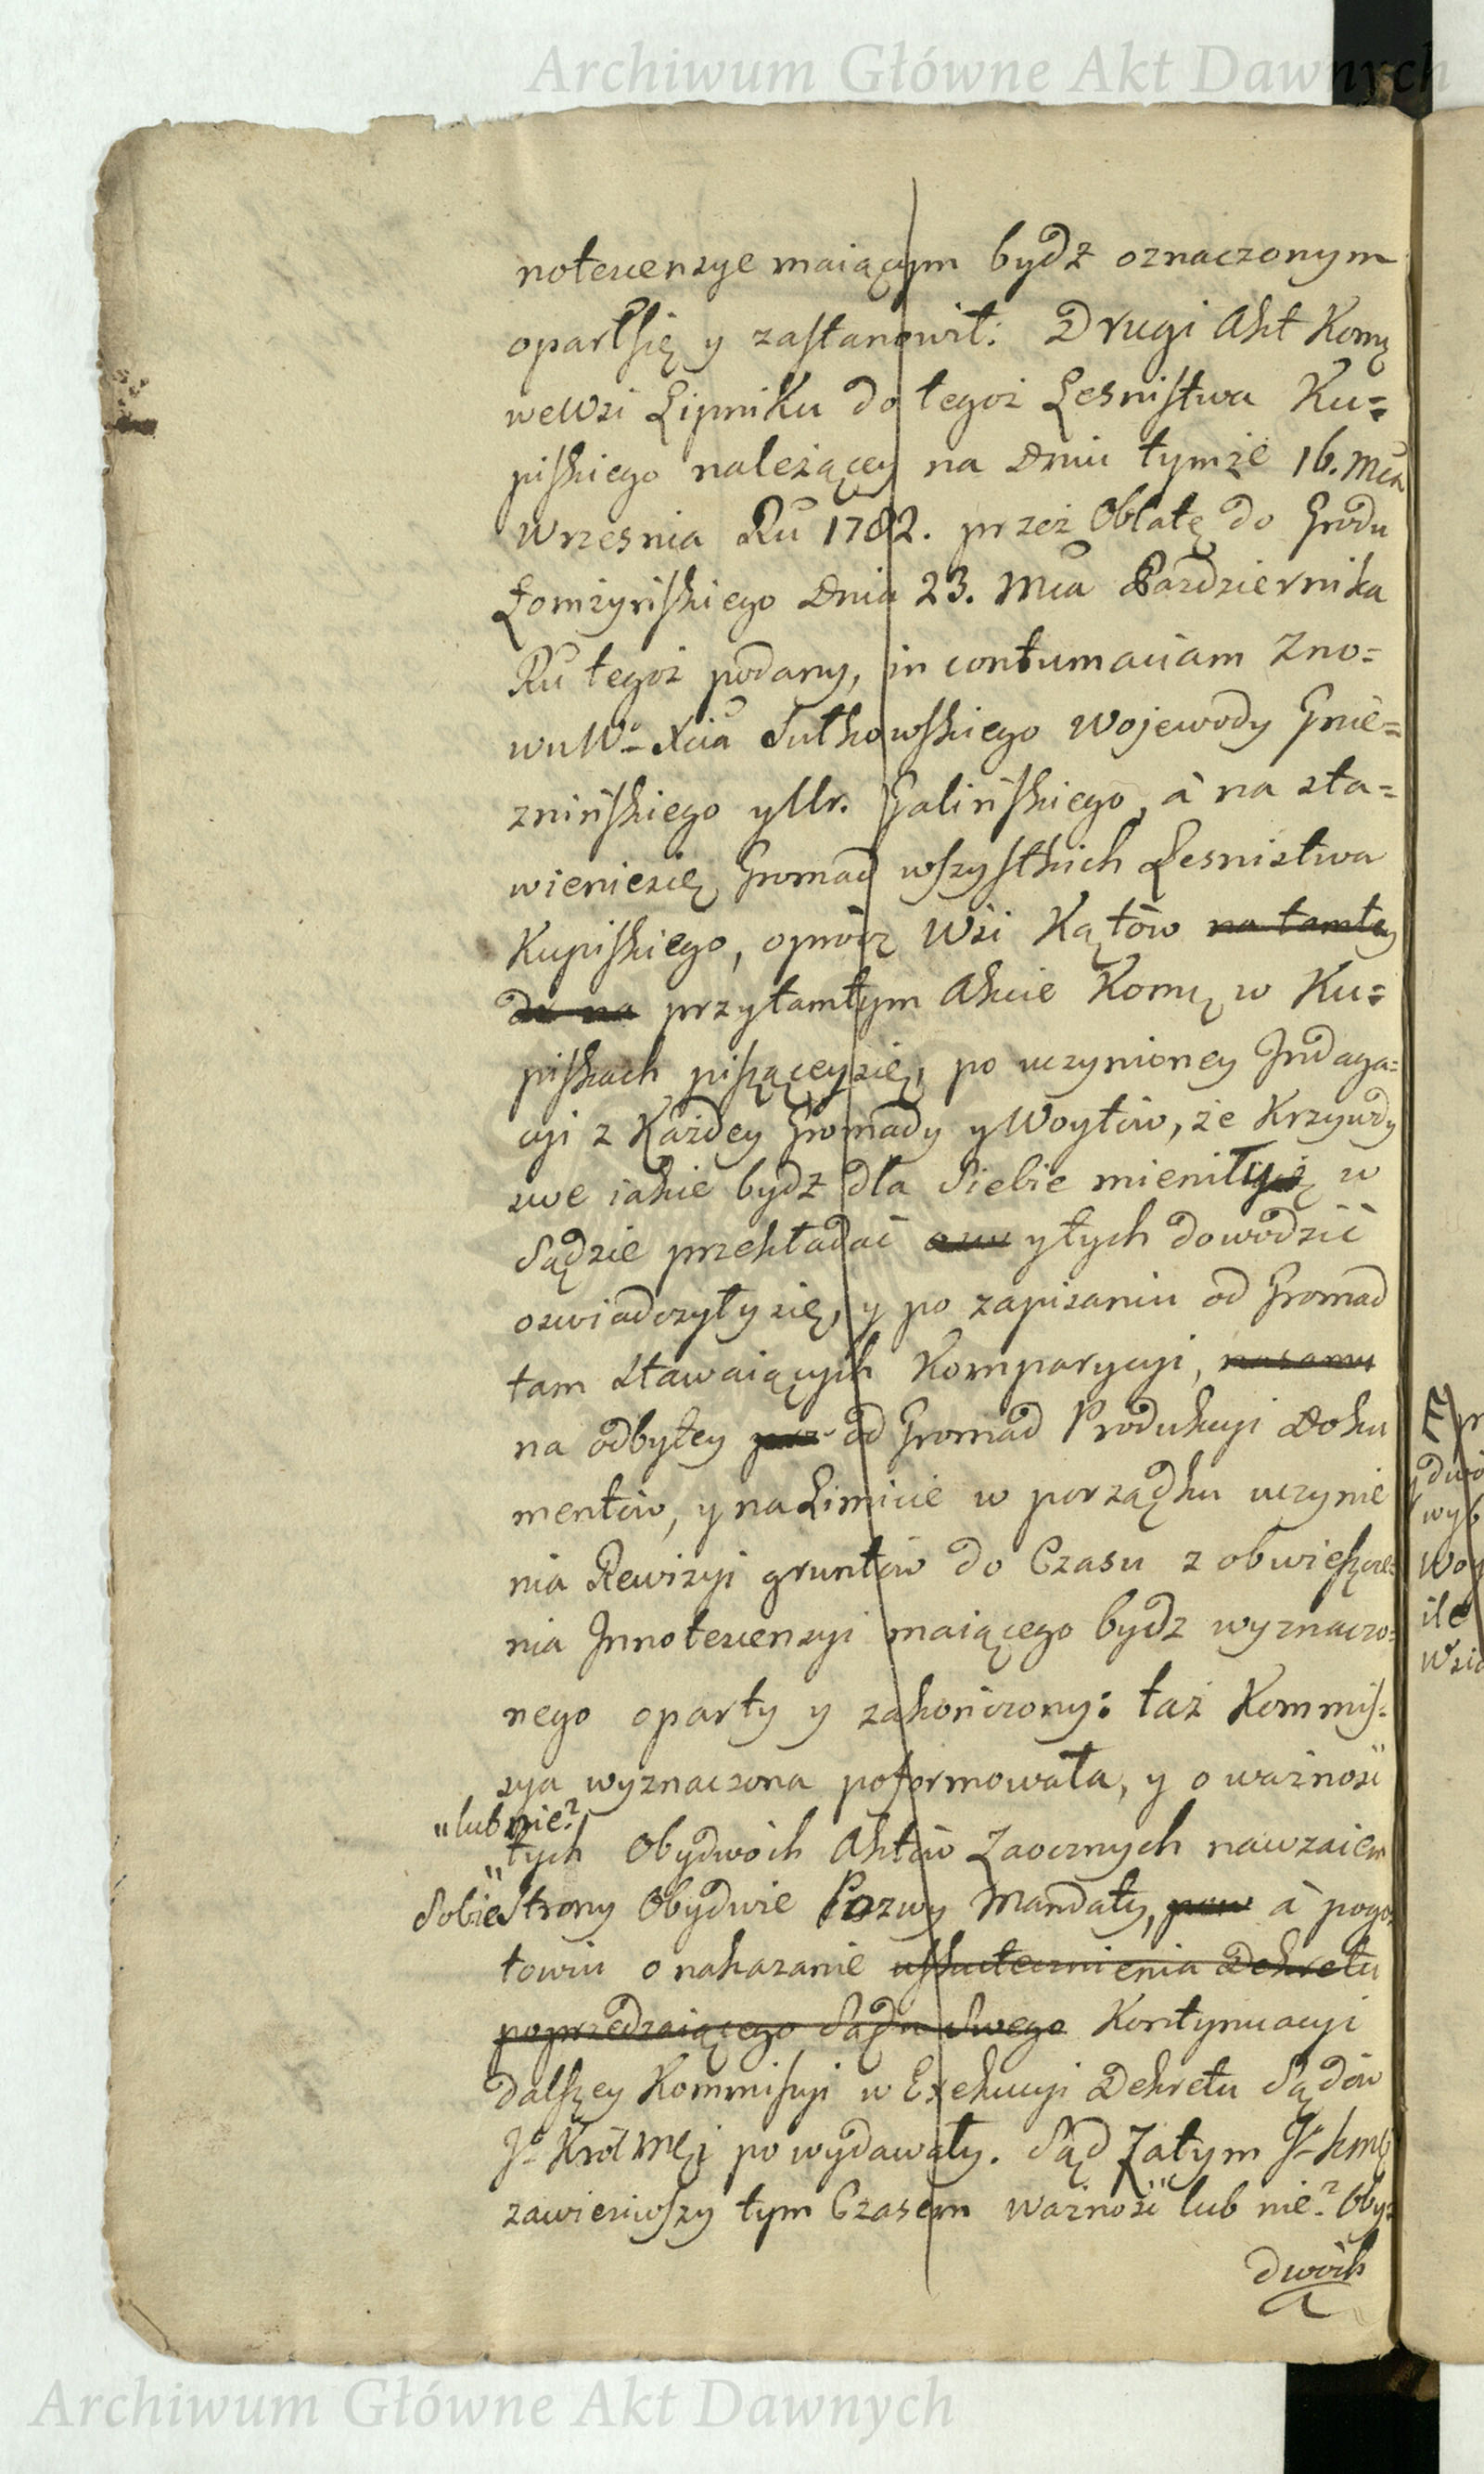 Archiwum Główne Akt Dawnych
notescensye maiącym bydź oznaczonym
oparł się y zastanowił: Drugi Akt Komię
we Wsi Lipniku do tegoż Lesnistwa Ku=
piskiego należącey na Dniu tymże 16. Mca
Wrzesnia Ru 1782. przez Oblatę do Grodu
Łomżyńskiego Dnia 23. Mca Pazdziernika
Ru tegoż podany, in contumaciam Zno=
wu Wo Xcia Sułkowskiego Wojewody Gnie=
znińskiego y Ur. Galińskiego, à na sta=
wieniesię Gromad wszystkich Lesnistwa
Kupiskiego, oprócz Wsi Kątów na tamtey
przytamtym Akcie Komię w Ku=
piskach piszącey się, po uczynioney Indaga=
cyi z Każdey Gromady y Woytów, że Krzywdy
swe iakie bydź dla Siebie mieniły w
Sądzie przekładać y tych dowodzić
oswiadczyły się, y po zapisaniu od Gromad
tam stawaiących Komparycyi,
na odbytey od Gromad Produkcyi Doku
mentów, y na Limicie w porządku uczynie
nia Rewizyi gruntów do Czasu z obwieszcze=
nia Innotescensyi maiącego bydź wyznaczo=
nego oparty y zakończony: taż Kommis=
sya wyznaczona poformowała, y o ważność
"lub nie?
"tych Obydwóch Aktów Zaocznych nawzaiem
Sobie Strony Obydwie Pozwy Mandaty, à pogo
towiu o nakazanie uskutecznienia Dekretu
poprzedzaiącego Sądu Swego Kontynuacyi
dalszey Kommissyi w Exekucyi Dekretu Sądów
Jo Król Mci powydawały. Sąd Zatym
zawiesiwszy tym Czasem ważność "lub nie? Oby=
dwóch
Archiwum Główne Akt Dawnych